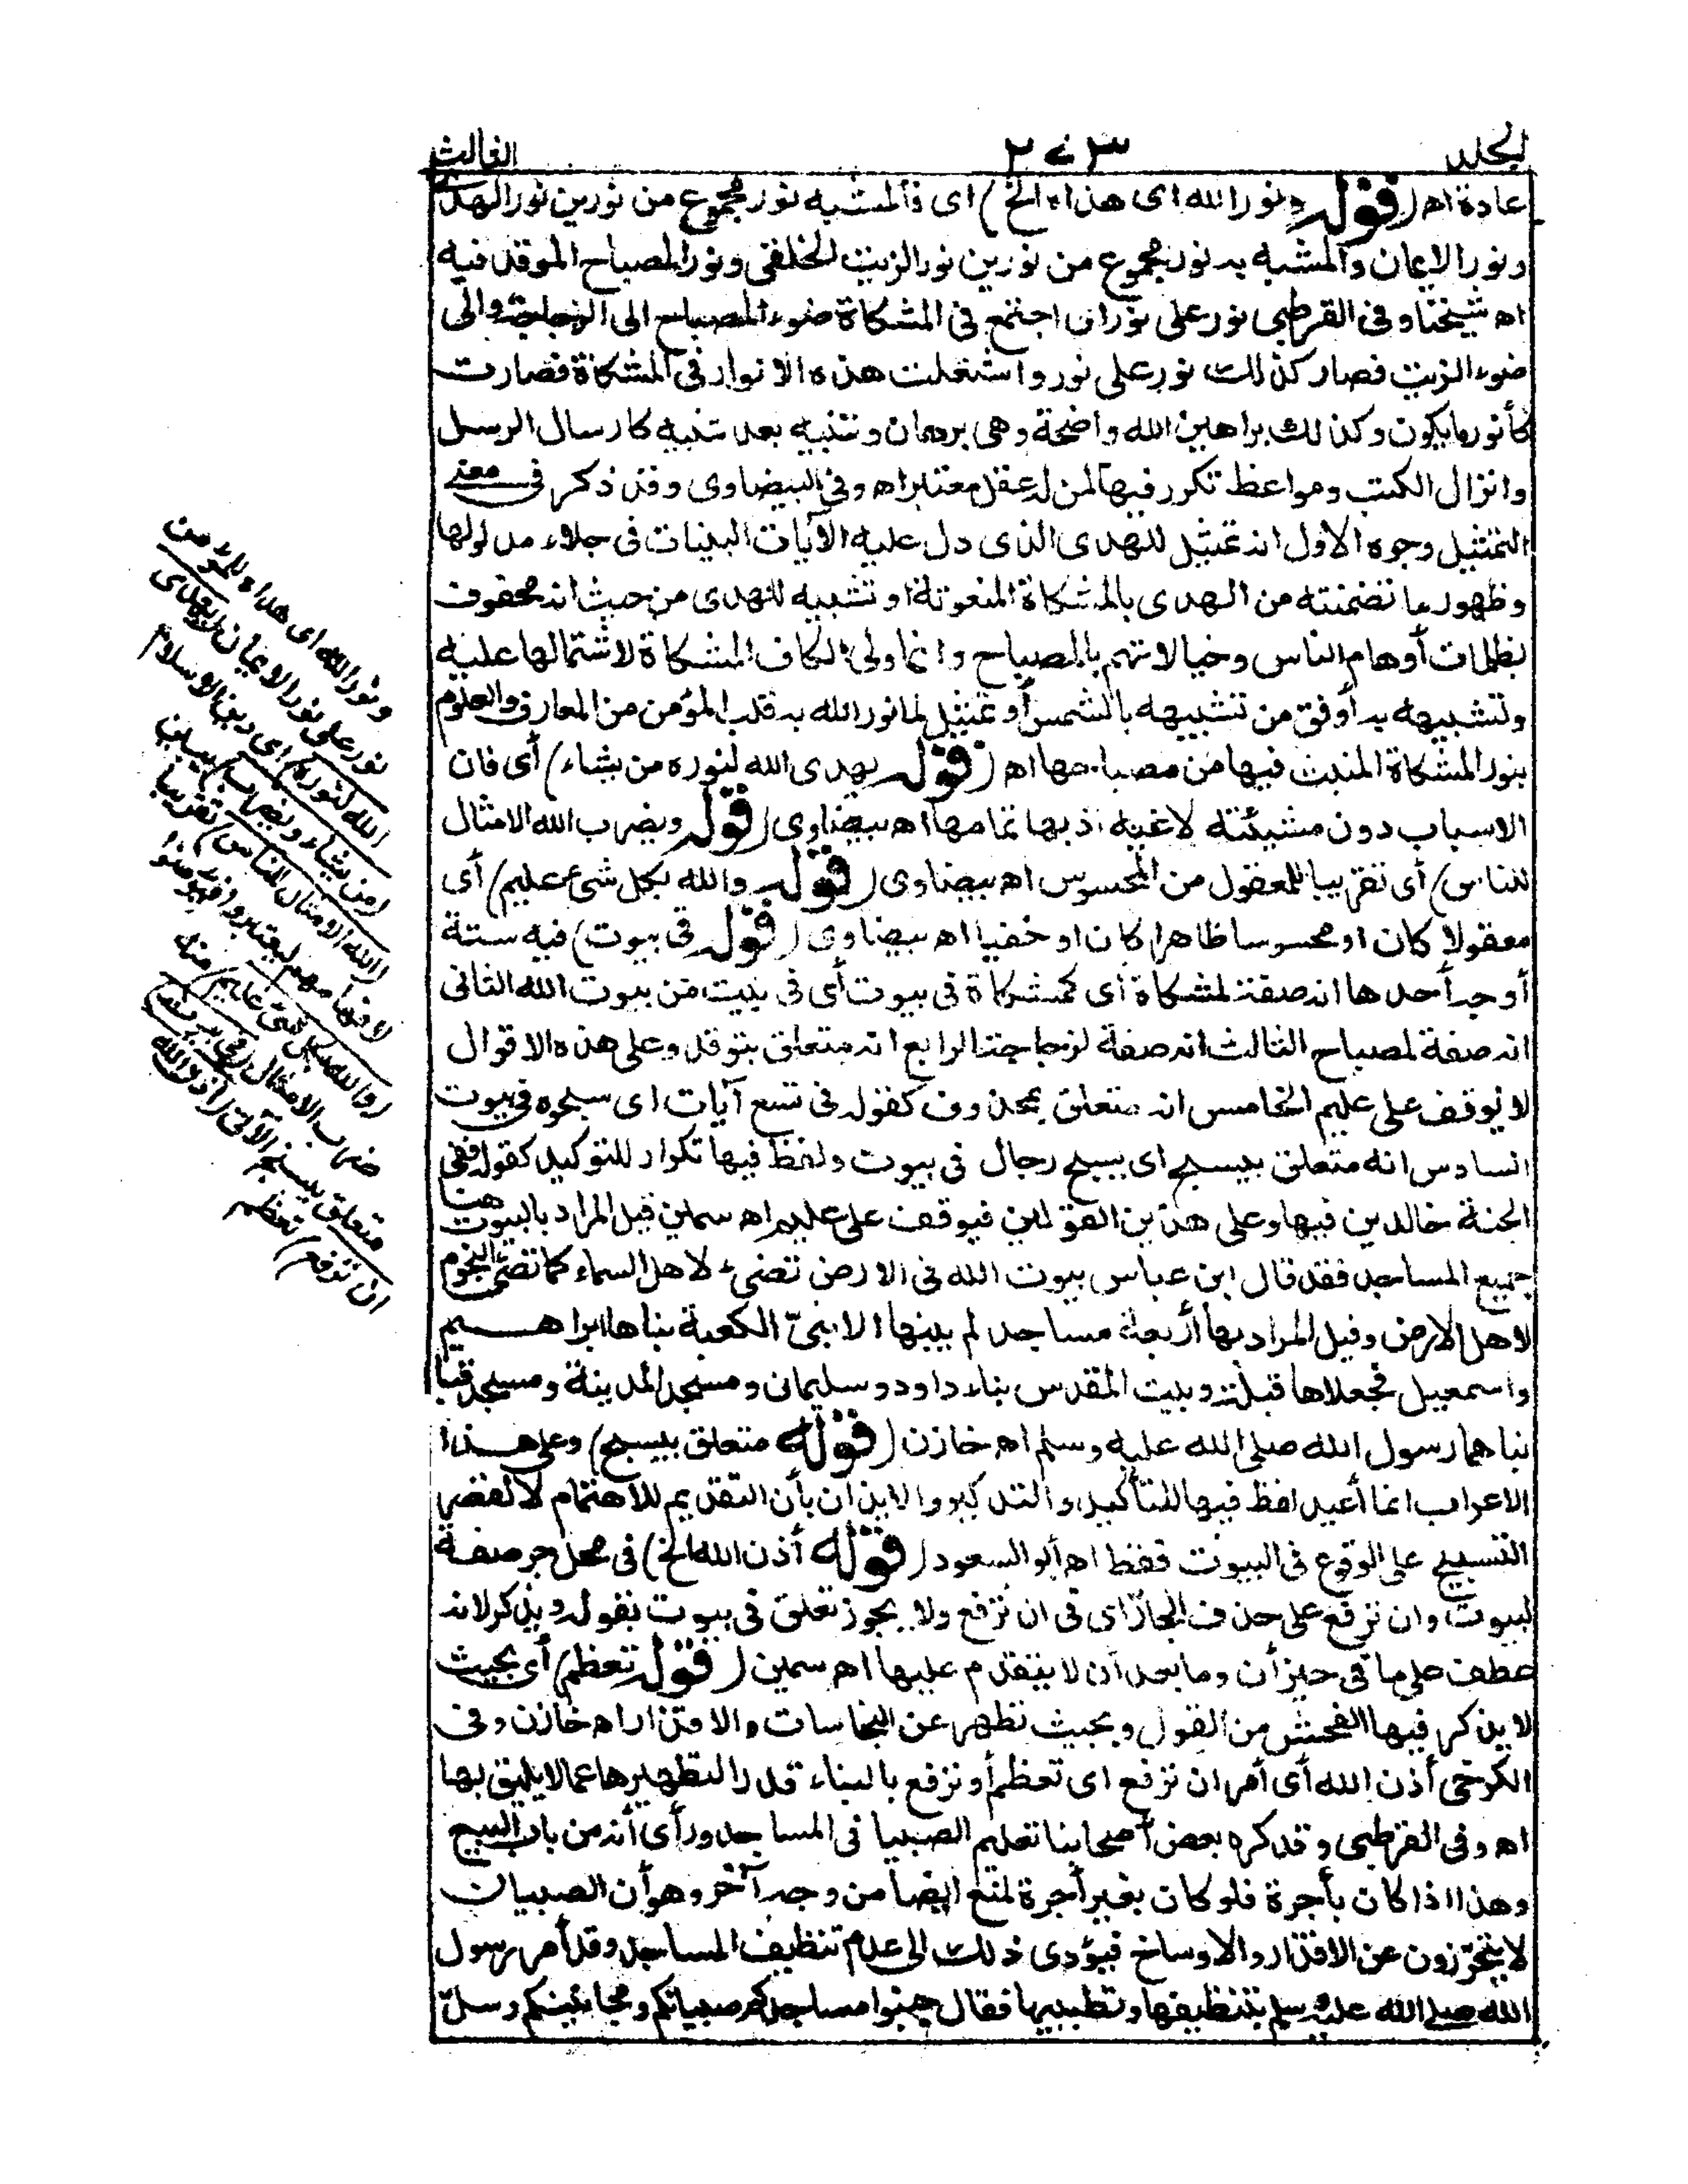 الجلد ٢٧٣ الثالث
عادة اه (قوله ونور الله اى هداه الخ) اى فالمشبه نور مجموع من نورين نور الهدى
ونور الايمان والمشبه به نور مجموع من نورين نور الزيت الخلقى ونور المصباح الموقد فيه
اه شيخنا وفى القرطبى نور على نور اى اجتمع فى المشكاة ضوء المصباح الى الزجاجة والى
ضوء الزيت فصار كذلك نور على نور واشتعلت هذه الانوار فى المشكاة فصارت
كأنور ما يكون وكذلك براهين الله واضحة وهى برهان وتنبيه بعد تنبيه كارسال الرسل
وانزال الكتب ومواعظ تكرر فيها لمن له عقل معتبر اه وفى البيضاوى وقد ذكر فى معنى
التمثيل وجوه الاول انه تمثيل للهدى الذى دل عليه الآيات البينات فى جلاء مدلولها
وظهور ما تضمنته من الهدى بالمشكاة المنعوتة او تشبيه للهدى من حيث انه محفوف
بظلمات أوهام الناس وخيالاتهم بالمصباح وانما ولى الكاف المشكاة لاشتمالها عليه
وتشبيهه به أوفق من تشبيهه بالشمس أو تمثيل لما نور الله به قلب المؤمن من المعارف والعلوم
بنور المشكاة المنبث فيها من مصباحها اه (قوله يهدى الله لنوره من يشاء) أى فان
الاسباب دون مشيئته لاغية اذ بها تمامها اه بيضاوى (قوله ويضرب الله الامثال
للناس) أى تقريبا للمعقول من المحسوس اه بيضاوى (قوله والله بكل شئ عليم) أى
معقولا كان او محسوسا ظاهرا كان او خفيا اه بيضاوى (قوله فى بيوت) فيه ستة
أوجه أحدها انه صفة لمشكاة أى كمشكاة فى بيوت أى فى بيت من بيوت الله الثانى
انه صفة لمصباح الثالث انه صفة لزجاجة الرابع انه متعلق بتوقد وعلى هذه الاقوال
لا يوقف على عليم الخامس انه متعلق بمحذوف كقوله فى تسع آيات اى سبحوه فى بيوت
السادس انه متعلق بيسبح اى يسبح رجال فى بيوت ولفظ فيها تكرار للتوكيد كقوله ففى
الجنة خالدين فيها وعلى هذين القولين فيوقف على عليم اه سمين قيل المراد بالبيوت هنا
جميع المساجد فقد قال ابن عباس بيوت الله فى الارض تضىء لاهل السماء كما تضئ النجوم
لاهل الارض وقيل المراد بها أربعة مساجد لم يبنها الا نبىّ الكعبة بناها ابراهيم
واسمعيل فجعلاها قبلة وبيت المقدس بناه داود وسليمان ومسجد المدينة ومسجد قبا
بناهما رسول الله صلى الله عليه وسلم اه خازن (قوله متعلق بيسبح) وعلى هذا
الاعراب انما أعيد لفظ فيها للتأكيد والتذكير والايذان بأن التقديم للاهتمام لا لقصر
التسبيح على الوقوع فى البيوت فقط اه أبو السعود (قوله أذن الله الخ) فى محل جر صفة
لبيوت وان ترفع على حذف الجار اى فى ان ترفع ولا يجوز تعلق فى بيوت بقوله ويذكر لانه
عطف على ما فى حيز أن وما بعد أن لا يتقدم عليها اه سمين (قوله تعظم) أى بحيث
لا يذكر فيها الفحش من القول وبحيث تطهر عن النجاسات والاقذار اه خازن وفى
الكرخى أذن الله أى أمر ان ترفع اى تعظم أو ترفع بالبناء قدرا لتطهيرها عما لا يليق بها
اه وفى القرطبى وقد كره بعض أصحابنا تعليم الصبيا فى المساجد ورأى أنه من باب البيع
وهذا اذا كان بأجرة فلو كان بغير أجرة لمنع ايضا من وجه آخر وهو أن الصبيان
لا يتحرّزون عن الاقذار والاوساخ فيؤدى ذلك الى عدم تنظيف المساجد وقد أمر رسول
الله صلى الله عليه وسلم بتنظيفها وتطييبها فقال جنبوا مساجدكم صبيانكم ومجانينكم وسلّ
ونور الله اى هداه للمؤمن
نور على نور الايمان (يهدى
الله لنوره) اى دين الاسلام
(من يشاء ويضرب) يبين
(الله الامثال للناس) تقريبا
لافهامهم ليعتبروا فيؤمنوا
(والله بكل شئ عليم) منه
ضرب الامثال (فى بيوت)
متعلق بيسبح الآتى (أذن الله
ان ترفع) تعظم